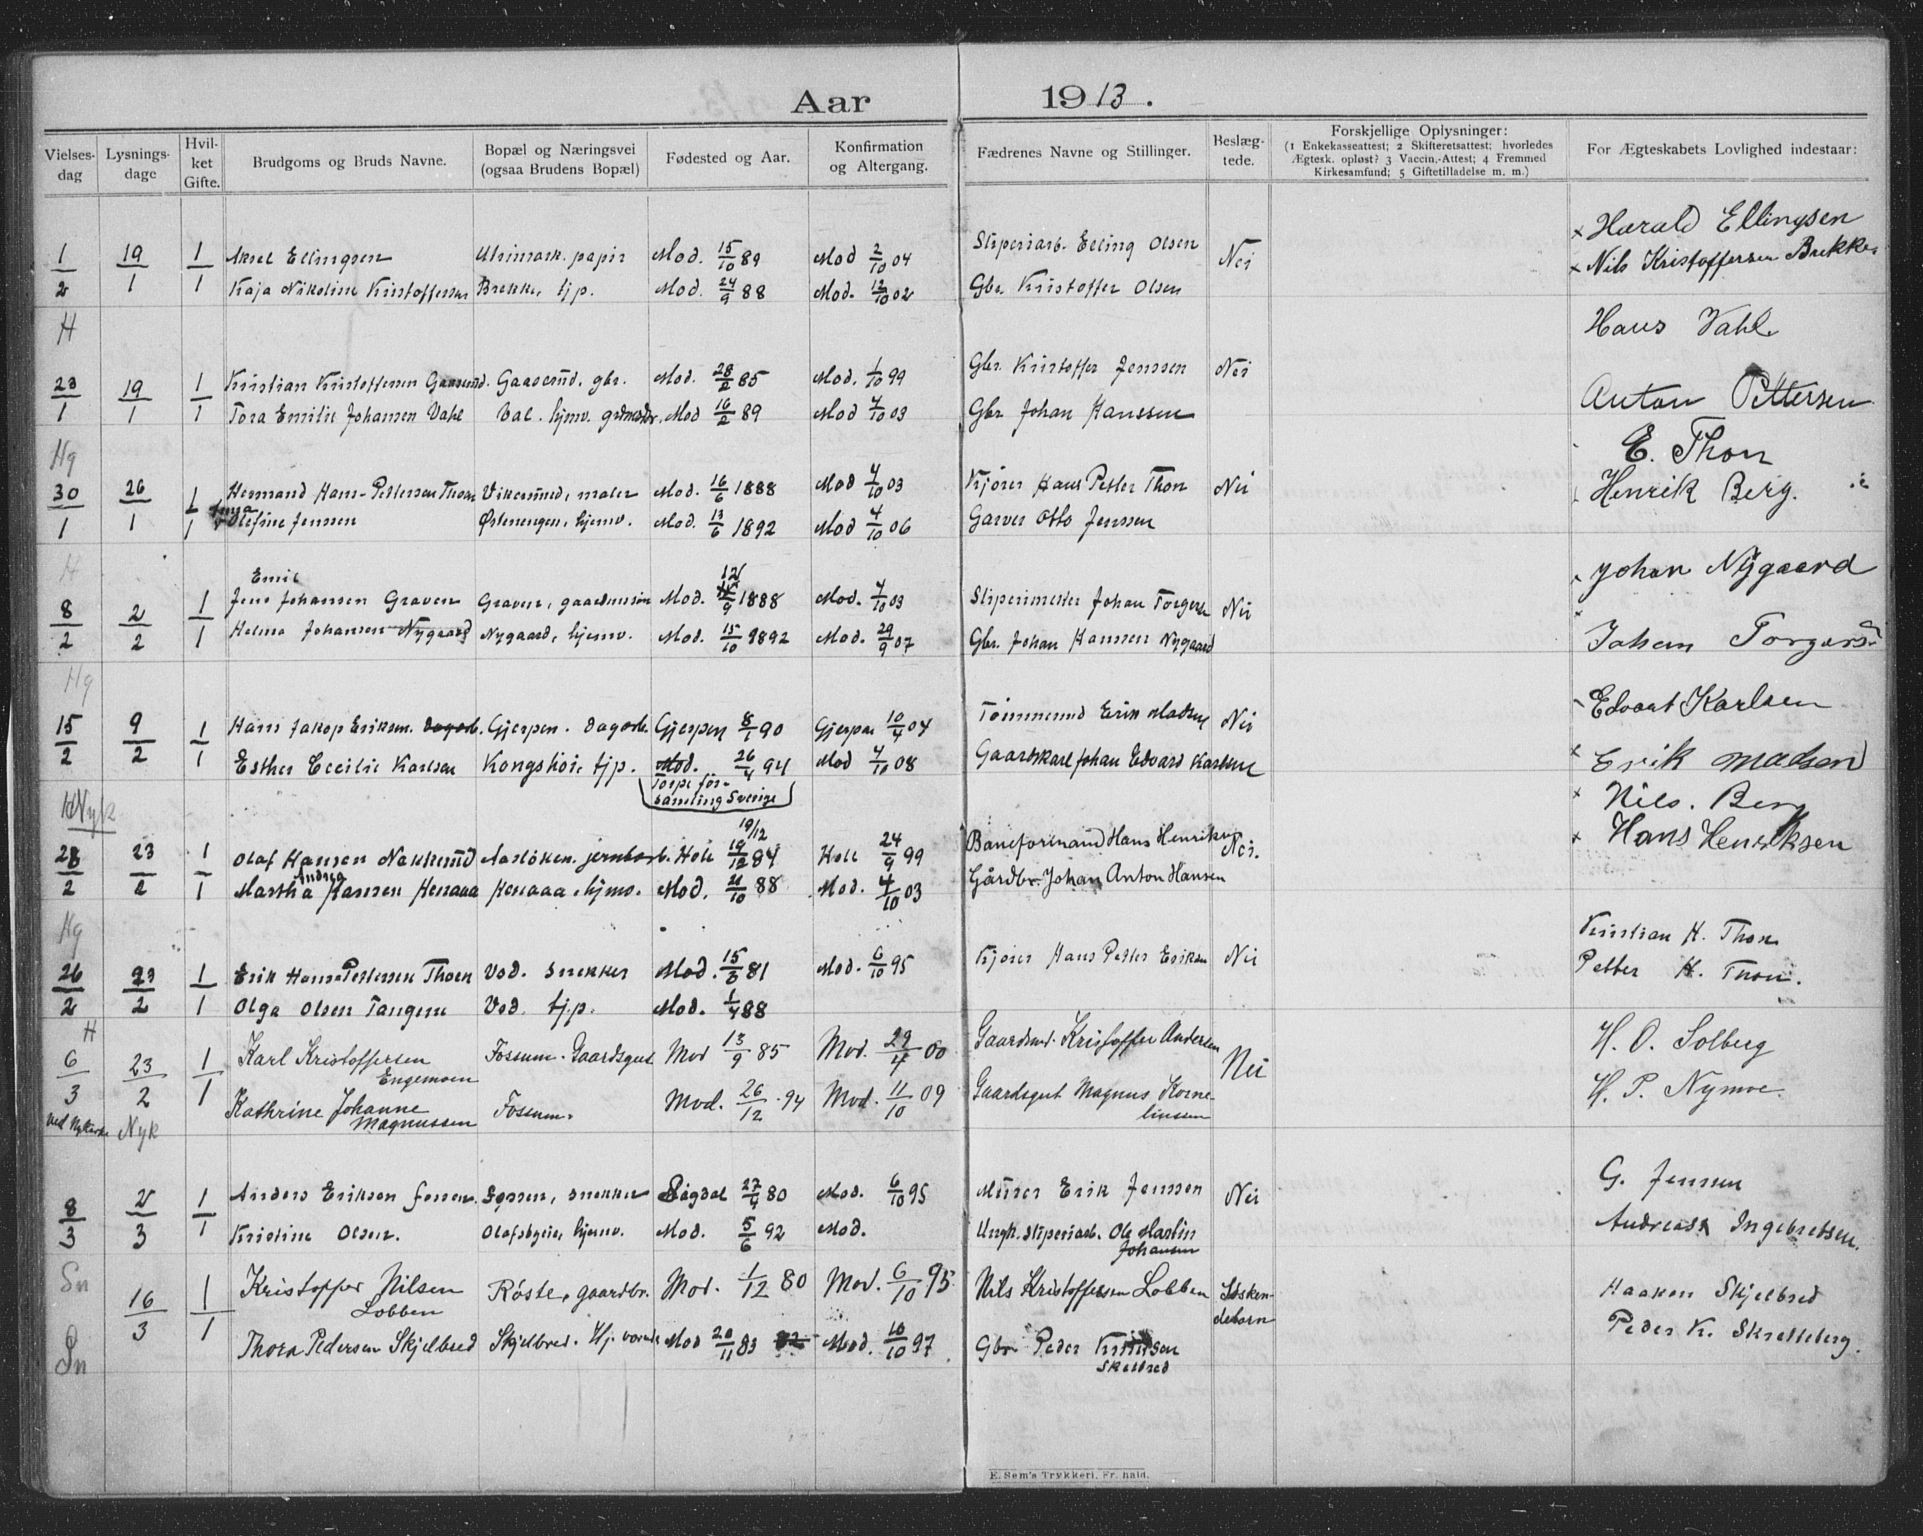 Aar 1913.
Vielsesdag
Lysningsdage
Hvilket Gifte.
Brudgoms og Bruds Navne.
Bopæl og Næringsvei (ogsaa Brudens Bopæl)
Fødested og Aar.
Konfirmation og Altergang.
Fædrenes Navne og Stillinger.
Beslægtede.
Forskjellige Oplysninger:
(1 Enkekasseattest; 2 Skifteretsattest; hvorledes
Ægtesk. opløst? 3 Vaccin.-Attest; 4 Fremmed
Kirkesamfund; 5 Giftetilladelse m. m.)
For Ægteskabets Lovlighed indestaar:
1/2 19/1 1 Aksel Ellingsen Mod. 15/10 89 Mod 2/10 04 Sliperiarb. Elling Olsen Nei × Harald Ellingsen
1 Kaja Nikoline Kristoffersen Brekke, tjp. Mod. 24/9 88 Mod. 12/10 02 Gbr. Kristoffer Olsen × Nils Kristoffersen Brekke
H
Hans Vahl.
23/1 19/1 1 Kristian Kristoffersen Gaasemd. gbr. Mod. 28/2 85 Mod. 1/10 99 Gbr. Kristoffer Jenssen Nei
1 Tora Emilie Johansen Vahl Val. hjmv. Mod 16/2 89 Mod 4/10 03 Gbr. Johan Hanssen Anton Pettersen
Hg
E. Thon
30/1 26/1 1 Hermand Hans-Pettersen Thon Vikersund, maler Mod. 16/6 1888 Mod 4/10 03 Kjører Hans Petter Thon Nei Henrik Berg.
1 Inga Olefine Jenssen Østenengen, hjemv. Mod. 13/6 1892 Mod 4/10 06 Garver Otto Jenssen
H
Johan Nygaard
8/2 2/2 1 Jens Emil Johansen Graven Graven, Mod. 12/9 1888 Mod. 4/10 03 Johan Nei
1 Helma Johansen Nygaard Nygaard, hjemv. Mod. 15/10 1892 Mod. 29/9 07 Gbr. Johan Hanssen Nygaard Johan Torgers.
Hg
Edvart Karlsen
15/2 9/2 1 Hans Jakop Eriksen. Gjerpen. dagarb. Gjerpen 8/1 90 Gjerpen 10/4 04 Tømmermd Erik Madsen Nei
1 Esther Cecilie Karlsen Kongshoie tjp. Mod. 26/4 94 Mod 4/10 08 Gaardskarl Johan Edvard Karlsen × Erik Madsen
Torpe församling Sverige
Nyk
Nils. Berg
28/2 23/2 1 Olaf Hansen Nakkerud Hole 19/12 84 19/12 Hole 24/9 99 Baneformand Hans Henriksen Nei. × Hans Henriksen
1 Martha Andrea Hansen Henaaa Henaaa. hjmv. Mod. 21/10 88 Mod. 4/10 03 Gårdbr. Johan Anton Hansen
Hg
Kristian H. Thon
26/2 23/2 1 Erik Hans-Pettersen Thoen Vod. snekker Mod. 15/3 81 Mod. 6/10 95 Kjører Hans Petter Eriksen Nei Petter H. Thon.
1 Olga Olsen Tangen Vod. tjp. Mod. 1/4 88
H
6/3 23/2 1 Karl Kristoffersen Engemoen Fossum. Gaardsgut Mod 13/9 85 Mod. 29/4 00 Gaardmd. Kristoffer Andersen Nei H. O. Solberg
1 Kathrine Johanne Magnussen Fossum. Mod. 26/12 94 Mod. 11/10 09 Gaardsgut Magnus Kornelinssen H. P. Nymoe.
Nyk
G. Jenssen
8/3 2/3 1 Anders Eriksen snekker Sigdal 27/9 80 Mod. 6/10 95 Murer Erik Jenssen Nei
1 Kristine Olsen. Olafsbyeie, hjemv. Mod. 5/6 92 Mod. Ungk. sliperiarb. Ole Martin Johansen Andreas Ingebretsen.
Sn
16/3 1 Kristoffer Nilsen Lobben Røste, gaardbr. Mod. 1/12 80 Mod. 6/10 95 Nils Kristoffersen Lobben Søskendebarn Haaken Skjelbred
1 Thora Pedersen Skjelbred Skjelbred. Hj. værende Mod 20/11 83 Mod. 10/10 97 Gbr Peder Skelbred Peder K. Skretteberg.
Sn
E. Sem's Trykkeri, Fr. hald.